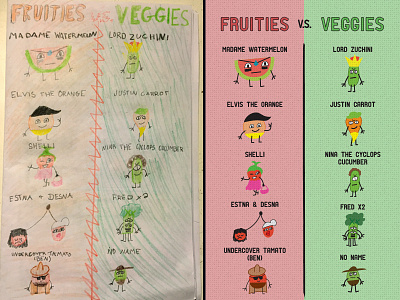 FRUITIES VS. VEGGIES
MADAME WATERMELON
LORD ZUCHINI
ELVIS THE ORANGE
JUSTIN CARROT
SHELLI
NINA THE CYCLOPS CUCUMBER
ESTNA & DESNA
FRED X2
UNDERCOVER TAMATO
(BEN)
NO NAME
FRUITIES V.S. VEGGIES
MADAME WATERMELON
LORD ZUCHINI
ELVIS THE ORANGE
JUSTIN CARROT
SHELLI
NINA THE CYCLOPS
CUCUMBER
ESTNA & DESNA
FRED X2
UNDERCOVER TAMATO
(BEN)
NO NAME